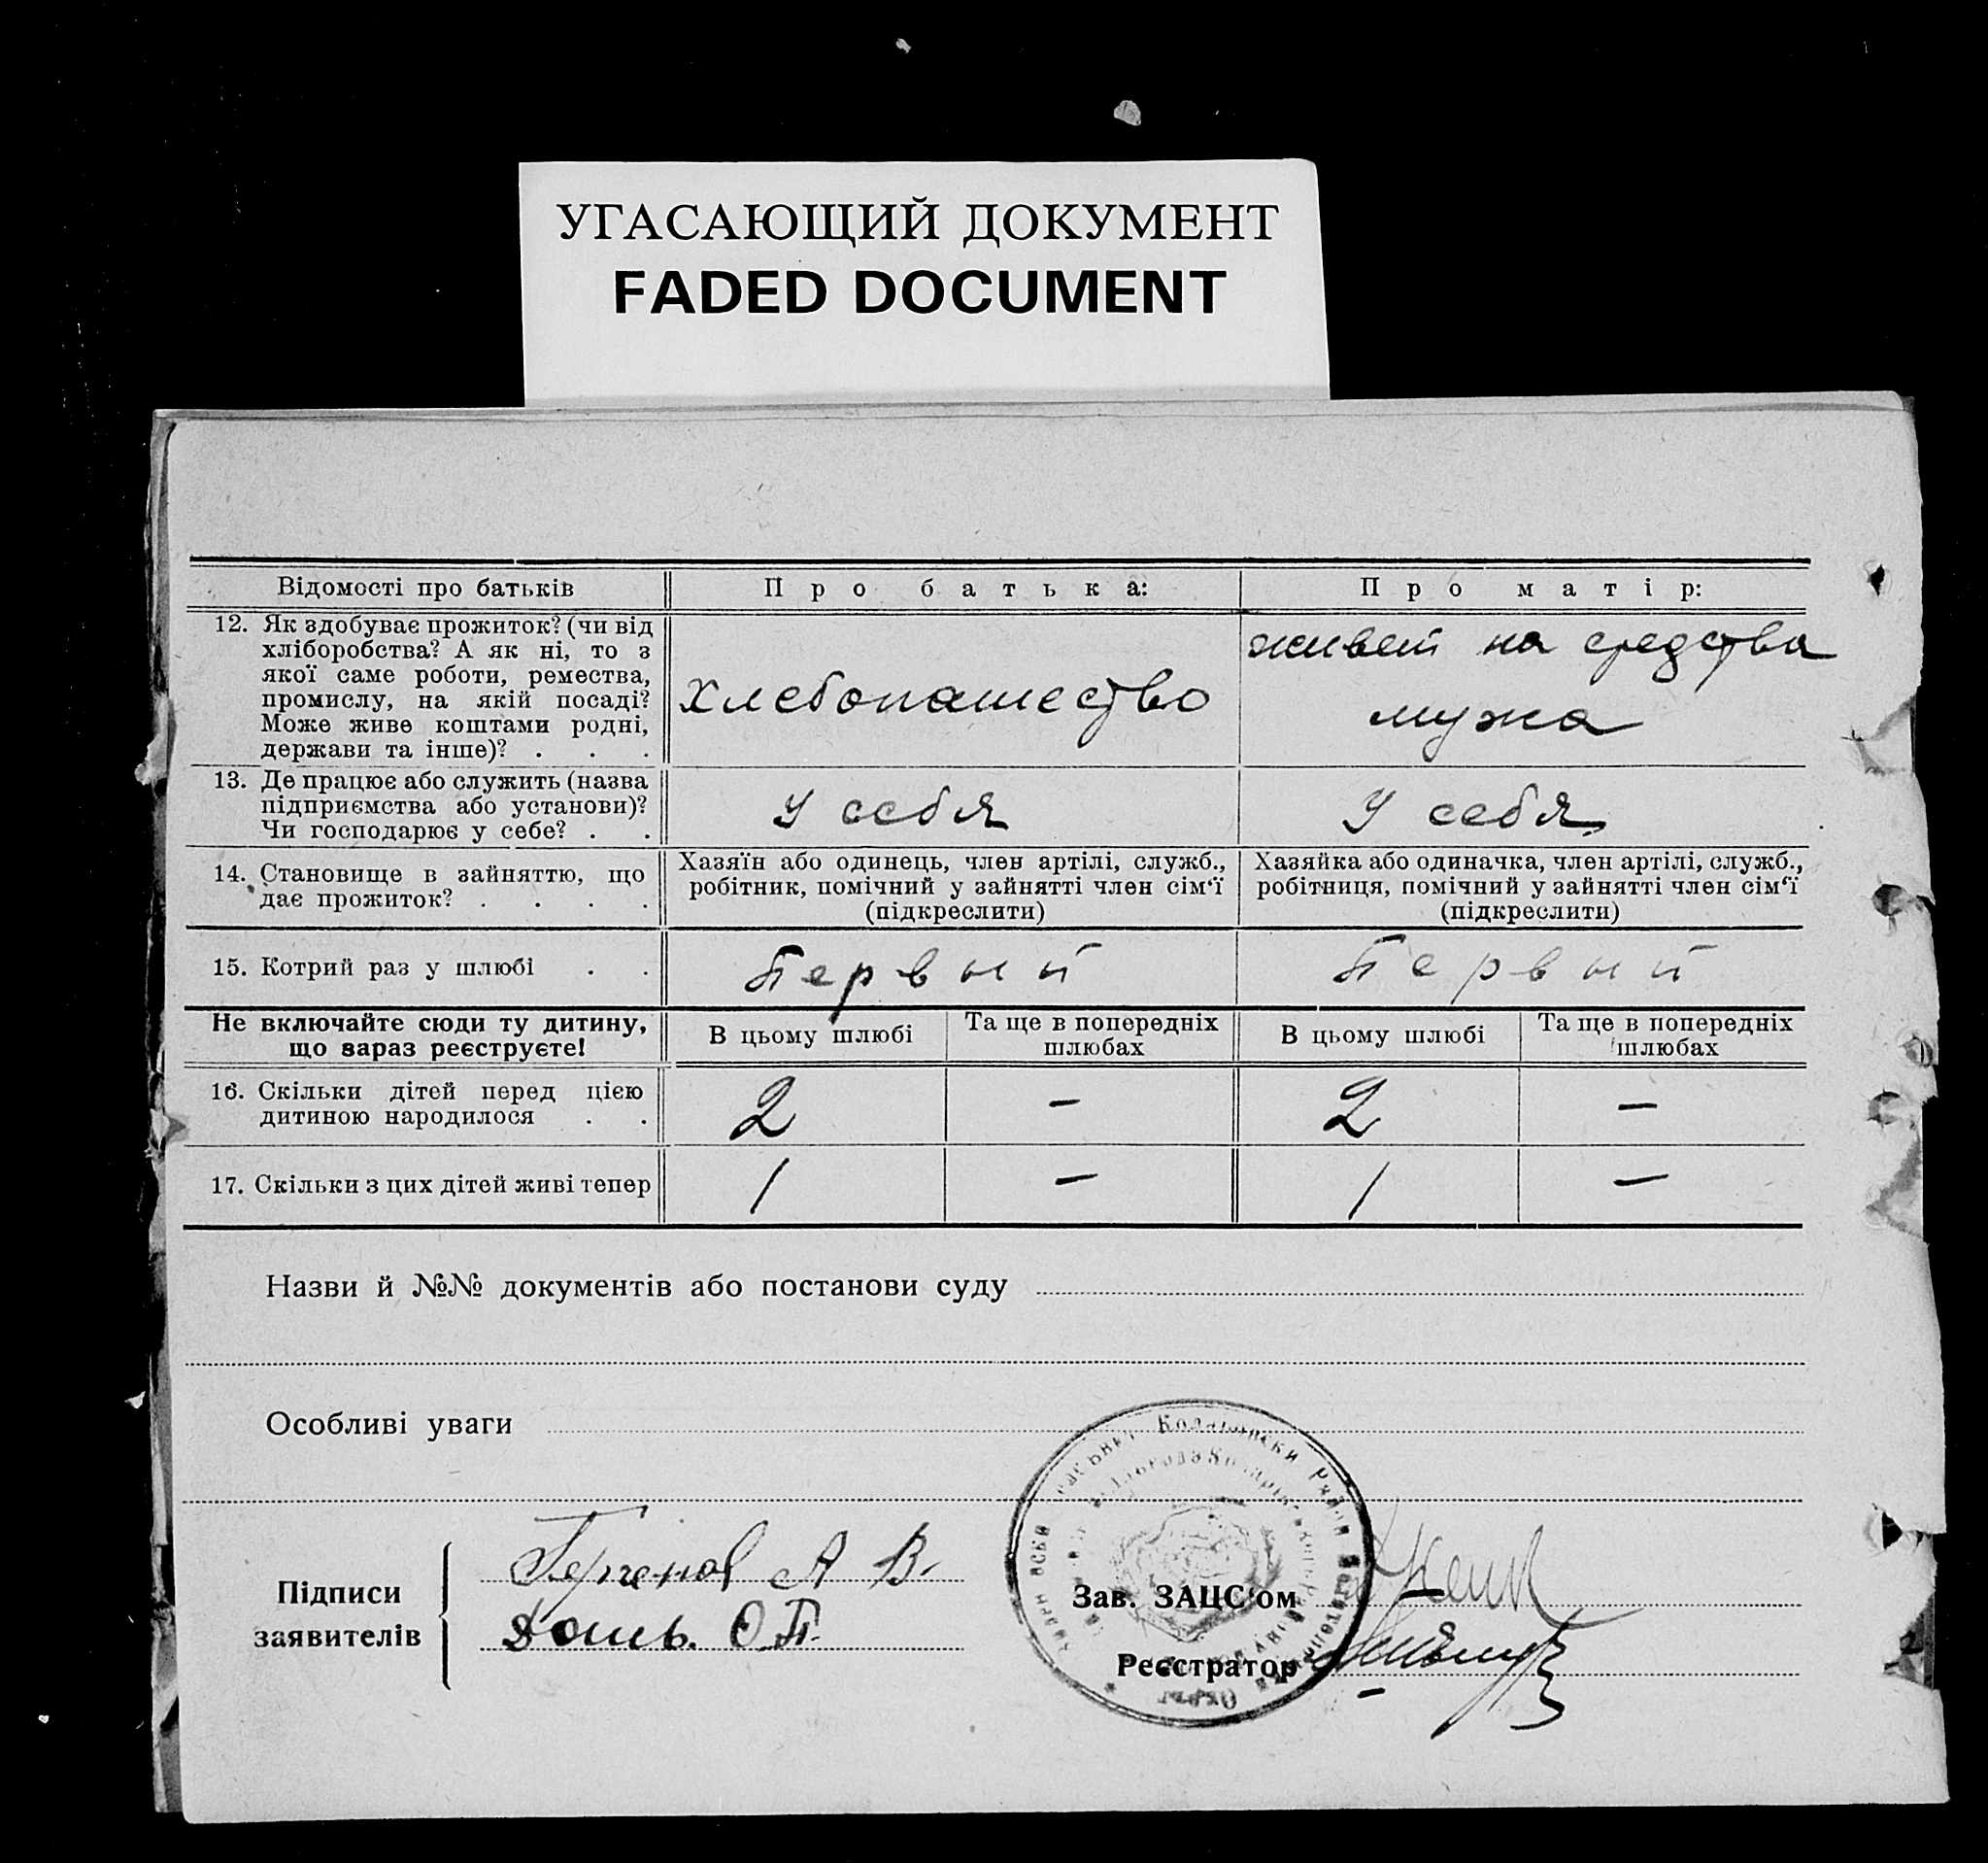 УГАСАЮЩИЙ ДОКУМЕНТ
FADED DOCUMENT
Відомості про батьків
Про батька:
Про матір:
12. Як здобуває прожиток? (чи від
хліборобства? А як ні, то з
якої саме роботи, ремества,
промислу, на якій посаді?
Може живе коштами родні,
держави та інше)? . . .
Хлебопашество
живет на средства
мужа
13. Де працює або служить (назва
підприємства або установи)?
Чи господарює у себе? . .
У себя
У себя
14. Становище в зайняттю, що
дає прожиток? . . . .
Хазяїн або одинець, член артілі, служб.,
робітник, помічний у зайнятті член сім‘ї
(підкреслити)
Хазяйка або одиначка, член артілі, служб.,
робітниця, помічний у зайнятті член сім‘ї
(підкреслити)
15. Котрий раз у шлюбі . .
Первый
Первый
Не включайте сюди ту дитину,
що зараз реєструєте!
В цьому шлюбі
Та ще в попередніх
шлюбах
В цьому шлюбі
Та ще в попередніх
шлюбах
16. Скільки дітей перед цією
дитиною народилося . .
2
–
2
–
17. Скільки з цих дітей живі тепер
1
–
1
–
Назви й №№ документів або постанови суду
Особливі уваги
Підписи
заявителів
А В.
О.П.
Зав. ЗАЦС‘ом
Реєстратор